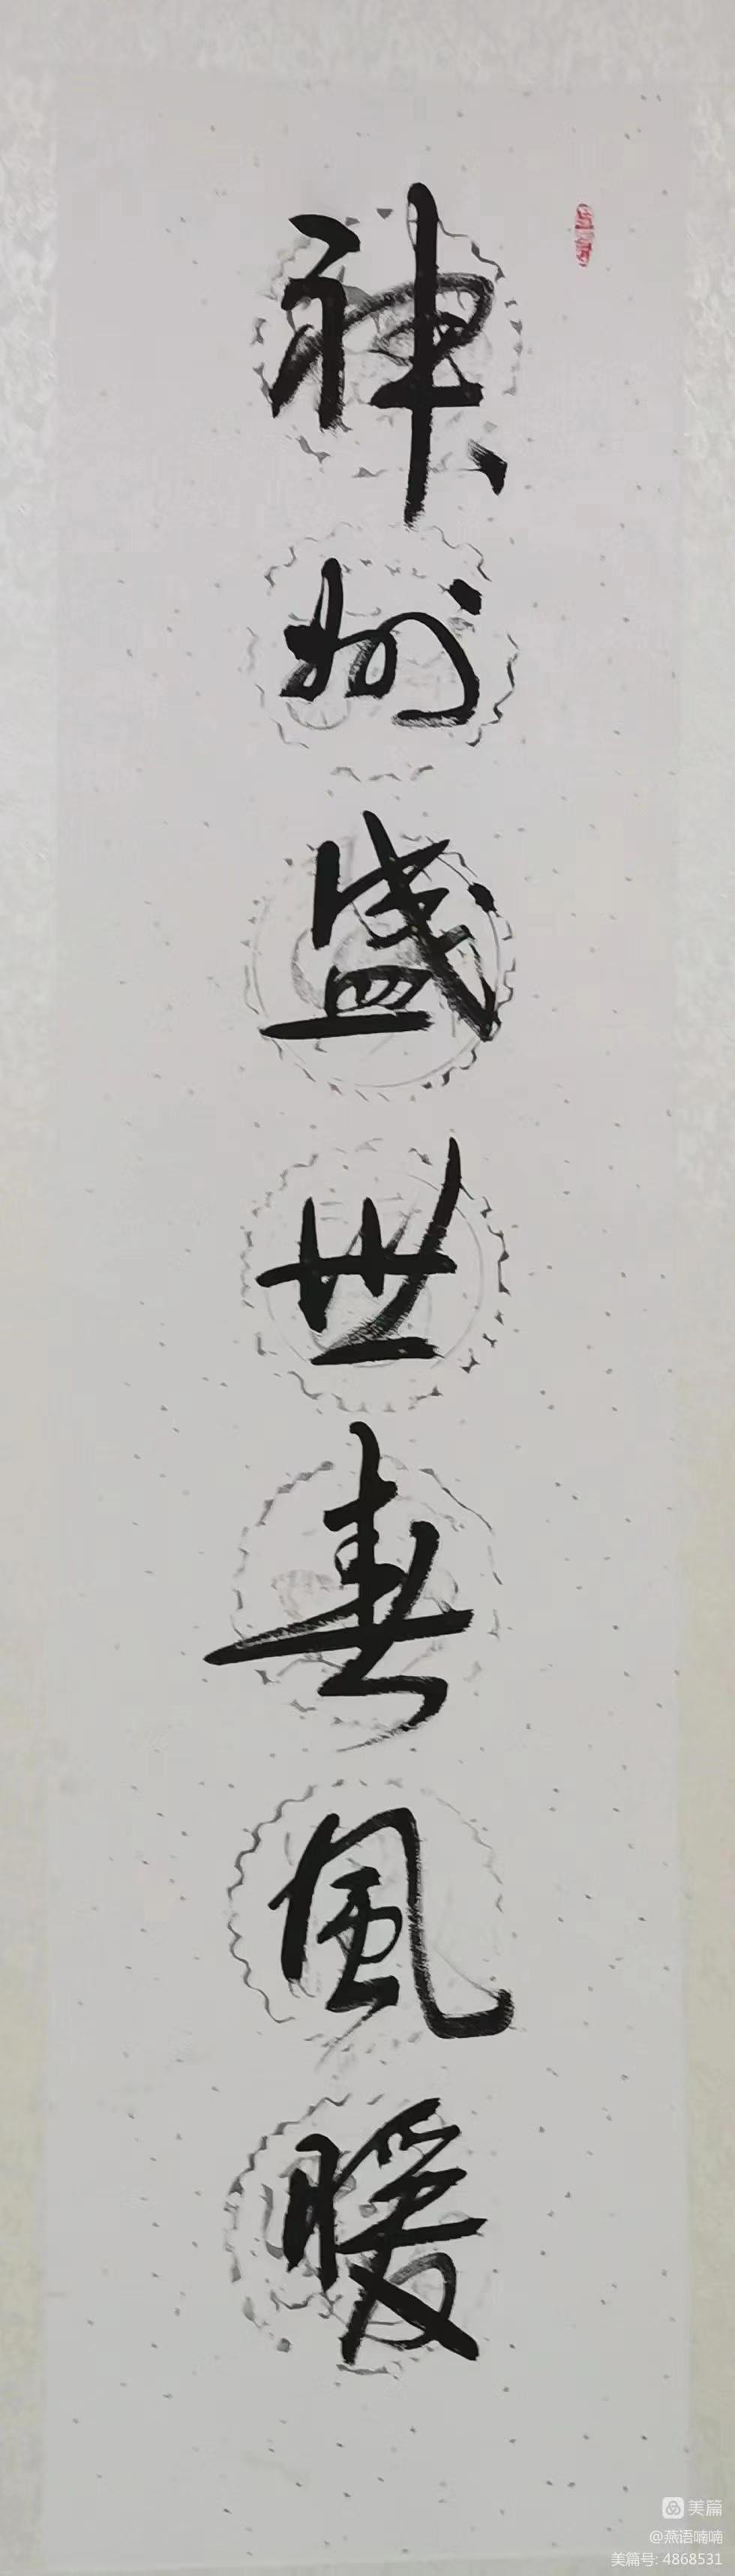 神州盛世春風暖
美篇
@燕语喃喃
美篇号: 4868531